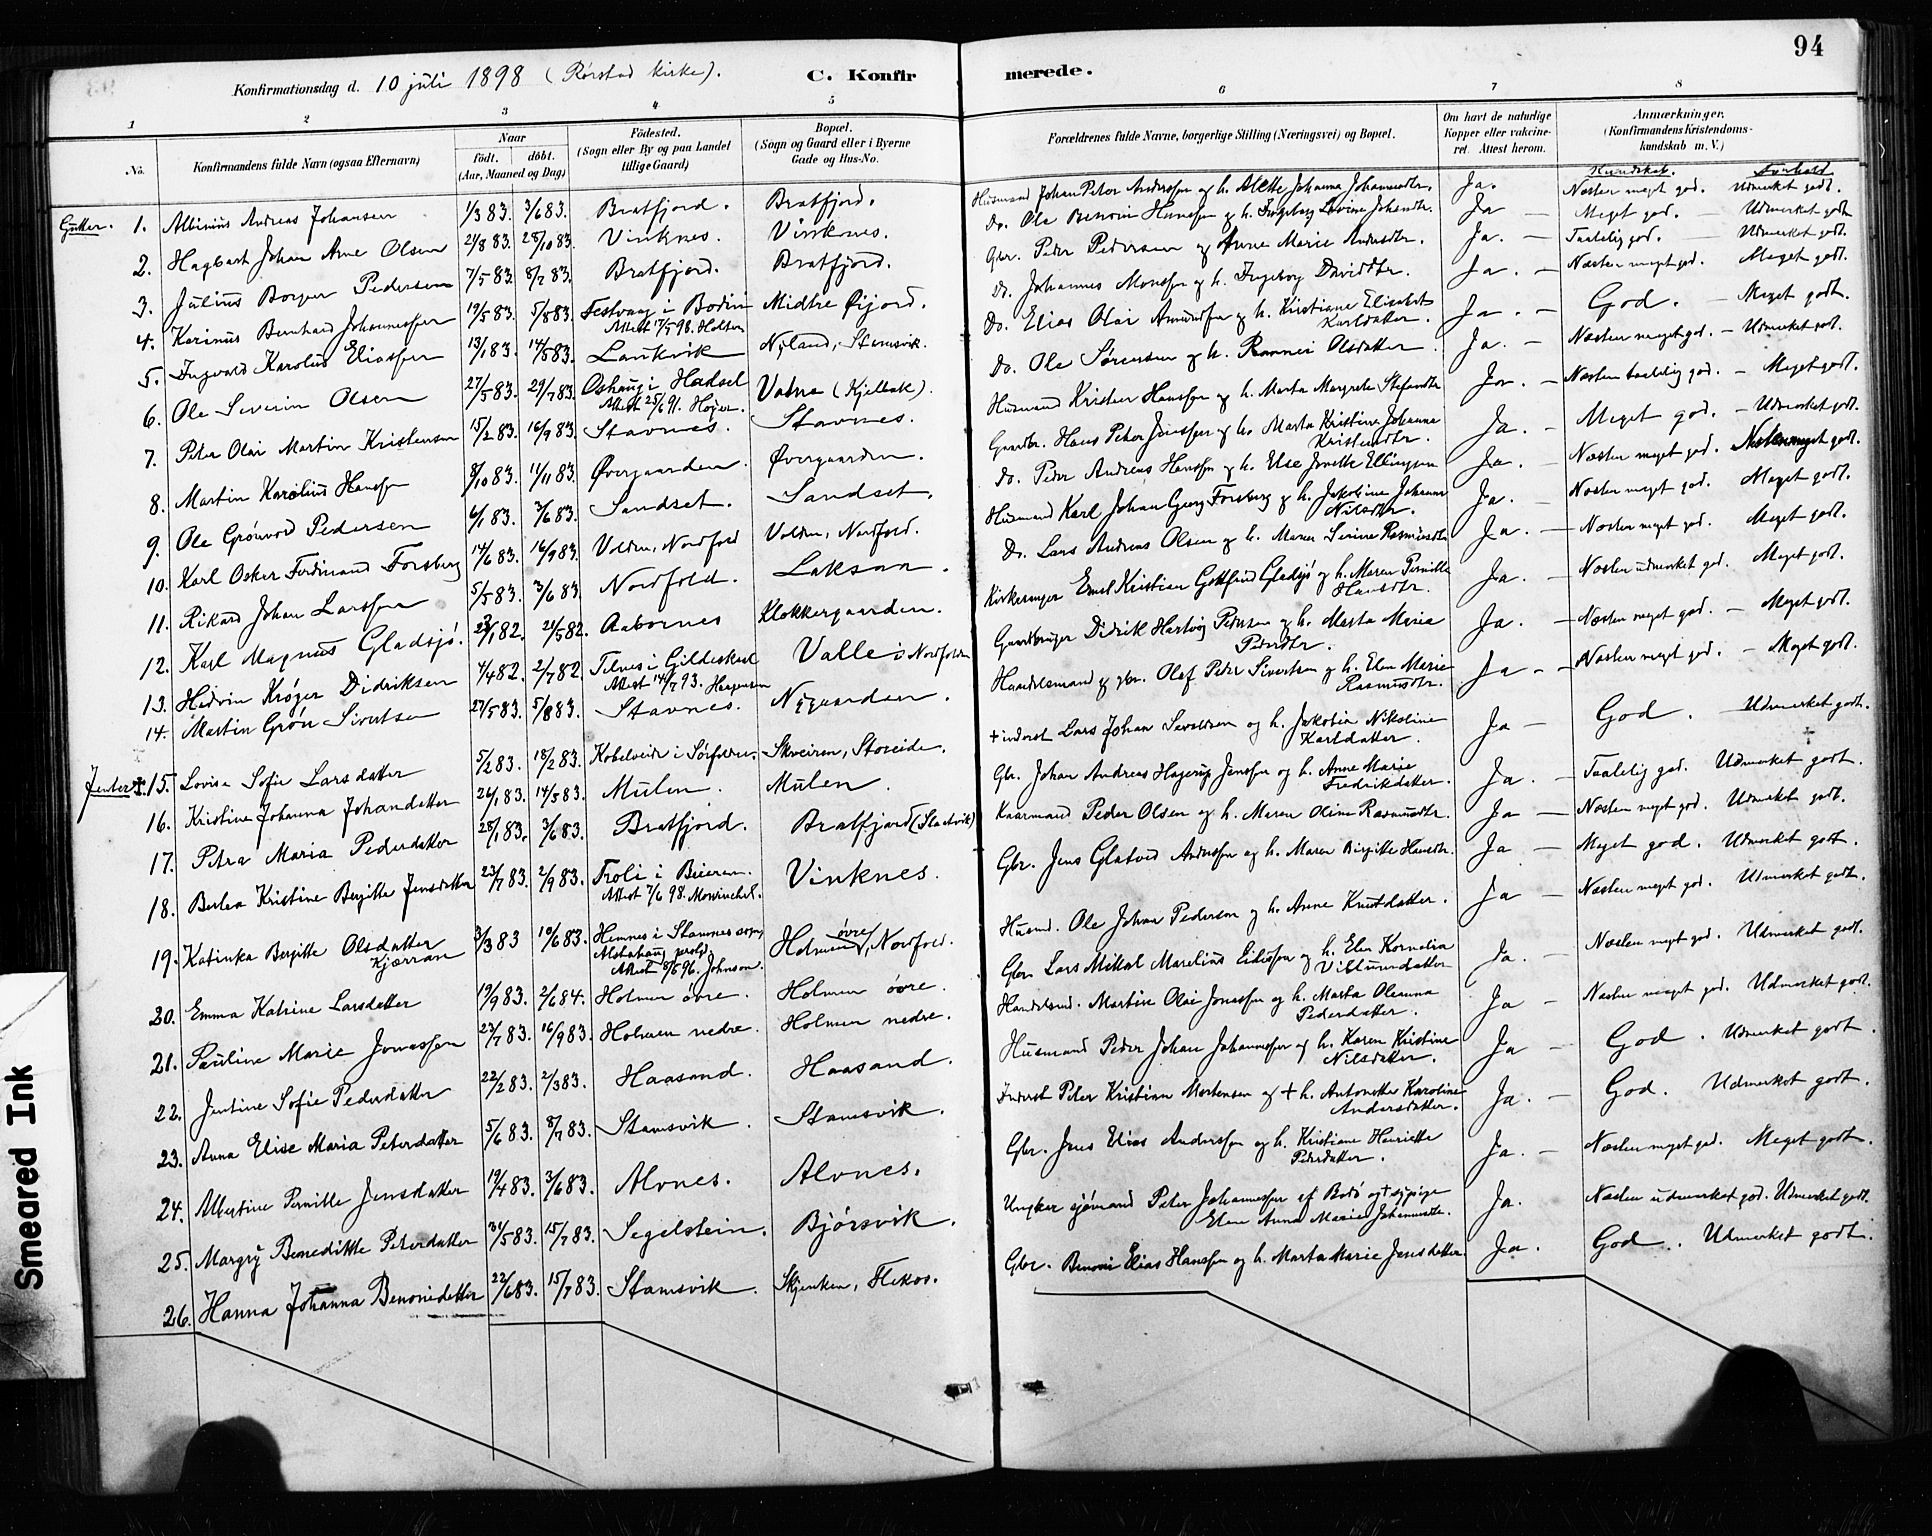 94
Konfirmationsdag d. 10 juli 1898 (Rørstad kirke). C. Konfirmerede.
1 2 3 4 5 6 7 8
No.
Konfirmandens fulde Navn (ogsaa Efternavn)
Naar
født. døbt.
(Aar, Maaned og Dag)
Fødested.
(Sogn eller By og paa Landet
tillige Gaard)
Bopæl.
(Sogn og Gaard eller i Byerne
Gade og Hus-No.
Forældrenes fulde Navne, borgerlige Stilling (Næringsvei) og Bopæl.
Om havt de naturlige
Kopper eller vakcine-
ret. Attest herom.
Anmærkninger.
(Konfirmandens Kristendoms-
kundskab m. V.)
Kundskab. Forhold
Gutter. 1. Albinus Andreas Johansen 1/3 83. 3/6 83. Bratfjord. Bratfjord. Husmand Johan Peter Anderssen og h. Alette Johanna Johannesdtr. Ja. Næsten meget god. Udmerket godt.
2. Hagbart Johan Arne Olsen 21/8 83. 28/10 83. Vinknes. Vinknes. Do. Ole Benoni Hanssen og h. Ingeborg Lovine Johandtr. Ja — Meget god. Udmerket godt
3. Julius Borger Pedersen 7/5 83. 8/7 83. Bratfjord. Bratfjord. Gbr. Peder Pedersen og Anne Marie Andersdtr. Ja. — Taalelig god. Udmerket godt.
4. Karinus Bernhard Johannessen 19/5 83. 5/8 83. Festvaag i Bodin Attest 17/5 98. Holten Midtre Øijord. Do. Johannes Monssen og h. Ingeborg Daviddtr. Ja. — Næsten meget god. Meget godt.
5. Ingvald Karolus Eliassen 13/1 83. 14/5 83. Laukvik Nyland, Stamsvik. Do. Elias Olai Amundsen og h. Kristiane Elisabet Karlsdatter. Ja. — God. — Meget godt.
6. Ole Severin Olsen 27/5 83. 29/7 83. Oshaug i Hadsel Attest 25/6 91. Høyer. Vatne (Kjelbak). Do. Ole Sørensen og h. Olsdatter. Ja. — Næsten meget god. — Udmerket godt.
7. Peter Olai Martin Kristensen 15/2 83. 16/9 83. Stavnes. Stavnes. Husmand Kristen Hanssen og h. Marta Margrete Stefansdtr Ja. — Næsten taalelig god. — Meget godt.
8. Martin Karolius Hanssen 8/10 83. 11/11 83. Øvergaarden. Øvergaarden. Gaardbr. Hans Peter Jenssen og h. Marta Kristine Johanna Kristensdtr. Ja. — Meget god. — Udmerket godt.
9. Ole Grønvod Pedersen 6/1 83. 3/6 83. Sandset. Sandset. Do. Peder Andreas Hanssen og h. Else Jonette Ellingsen Ja. — Næsten meget god. Næsten meget godt.
10. Karl Oskar Ferdinand Forsberg 14/6 83. 16/9 83. Volden, Nordfold Volden, Nordfold. Husmand Karl Johan Georg Forsberg og h. Jakobine Johanne Nilsdtr. Ja. — Næsten meget god. Meget godt.
11. Rikard Johan Larssen 5/5 83. 3/6 83 Nordfold. Laksaa. Do. Lars Andreas Olsen og h. Maren Serine Rasmusdtr Ja. — Næsten meget god. Meget godt.
12. Karl Magnus Gladsjø. 23/1 82. 21/5 82. Aabornes Klokkergaarden. Kirkesanger Emil Kristian Gottfred Gladsjø og h. Maren Pernille Hansdtr. Ja. — Næsten udmerket god. Meget godt.
13. Hedvin Krøger Didriksen 4/4 82. 2/7 82. Telnes i Gildeskaal Attest 14/7 93. Valle i Nordfolden Gaardbruger Didrik Hartvig Pedersen og h. Marta Maria Pedersdtr. Ja. — Næsten meget god. — Meget godt.
14. Martin Grøn Sivertsen 27/5 83. 5/8 83. Stavnes. Nygaarden. Handelsmand og gbr. Olaf Peder Sivertsen og h. Elen Marie Rasmusdtr. Ja — Næsten meget god. — Meget godt.
Jenter. 15. Lovise Sofie Larsdatter 5/2 83. 18/2 83. Kobelveid i Sørfolden. Skveiren, Storeide. + inderst Lars Johan Sevaldsen og h. Jakobia Nikoline Karlsdatter. Ja — God. — Udmerket godt.
16. Kristine Johanna Johandatter 26/1 83. 14/5 83. Mulen. Mulen. Gbr. Johan Andreas Hagerup Jenssen og h. Anne Marie Fredrikdatter. Ja. — Taalelig god. Udmerket godt.
17. Petra Maria Pedersdatter 28/1 83. 3/6 83. Bratfjord. Bratfjord (Slaatvik) Kaarmand Peder Olsen og h. Maren Oline Rasmusdtr. Ja — Næsten meget god. Udmerket godt.
18. Berlea Kristine Bergitte Jensdatter 23/7 83. 2/9 83. Troli i Beieren. Attest 7/6 98. Vinknes. Gbr. Jens Glatved Anderssen og h. Maren Birgitte Hansdtr. Ja — Meget god. Udmerket godt.
19. Katinka Bergitte Olsdatter Kjærran 3/3 83 10/6 83. Hemnes i Stamnes sogn, Alstahaug prgld. Attest 8/6 96. Johnson. Holmen øvre, Nordfold. Husmd. Ole Johan Pedersen og h. Anne Knutdatter. Ja — Næsten meget god. Udmerket godt.
20. Emma Katrine Larsdatter 19/9 83. 2/6 84. Holmen øvre. Holmen øvre. Gbr Lars Mikal Marelius Eidissen og h. Elen Kornelia Ja. — Næsten meget god. Udmerket godt.
21. Pauline Marie Jonassen 27/7 83. 16/9 83. Holmen nedre. Holmen nedre. Handelsmd. Martin Olai Jonassen og h. Marta Oleanna Pedersdatter. Ja — Næsten meget god. Udmerket godt.
22. Jentine Sofie Pedersdatter 22/2 83. 2/3 83. Haasand. Haasand. Husmand Peder Johan Johannessen og h. Karen Kristine Nilsdatter. Ja — God. Udmerket godt.
23. Anna Elise Maria Petersdatter 5/6 83. 8/7 83. Stamsvik. Stamsvik. Inderst Peter Kristian Mortensen og + h. Antonette Karoline Andersdatter. Ja. — God. Udmerket godt.
24. Albertine Pernille Jensdatter 19/4 83. 3/6 83. Alvnes. Alvnes. Gbr. Jens Elias Anderssen og h. Kristiane Henriette Pedersdatter. Ja. — Næsten meget god. Meget godt.
25. Margry Benedikte Petersdatter 31/5 83. 15/7 83. Segelstein. Bjørsvik. Ungkar sjømand Peter Johannessen af Bodø og + pige Elen Anna Marie Johannesdtr. Ja. Næsten udmerket god. Udmerket godt.
26. Hanna Johanna Benonidatter 22/6 83. 15/7 83. Stamsvik. Skjenken, Flekos. Gbr. Benoni Elias Hanssen og h. Marta Marie Jensdatter. Ja. God. Udmerket godt.
Smeared Ink